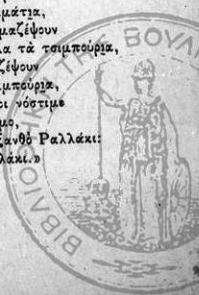 μάτια,
μαζέψουν
λα τὰ τσιμπούρια,
ζέψουν
μπούρια,
οι νόστιμο
μο,
Ξανθὸ Ραλλάκι:
λάκι.»
ΒΙΒΛΙΟΘΗΚΗ ΤΗΣ ΒΟΥΛ